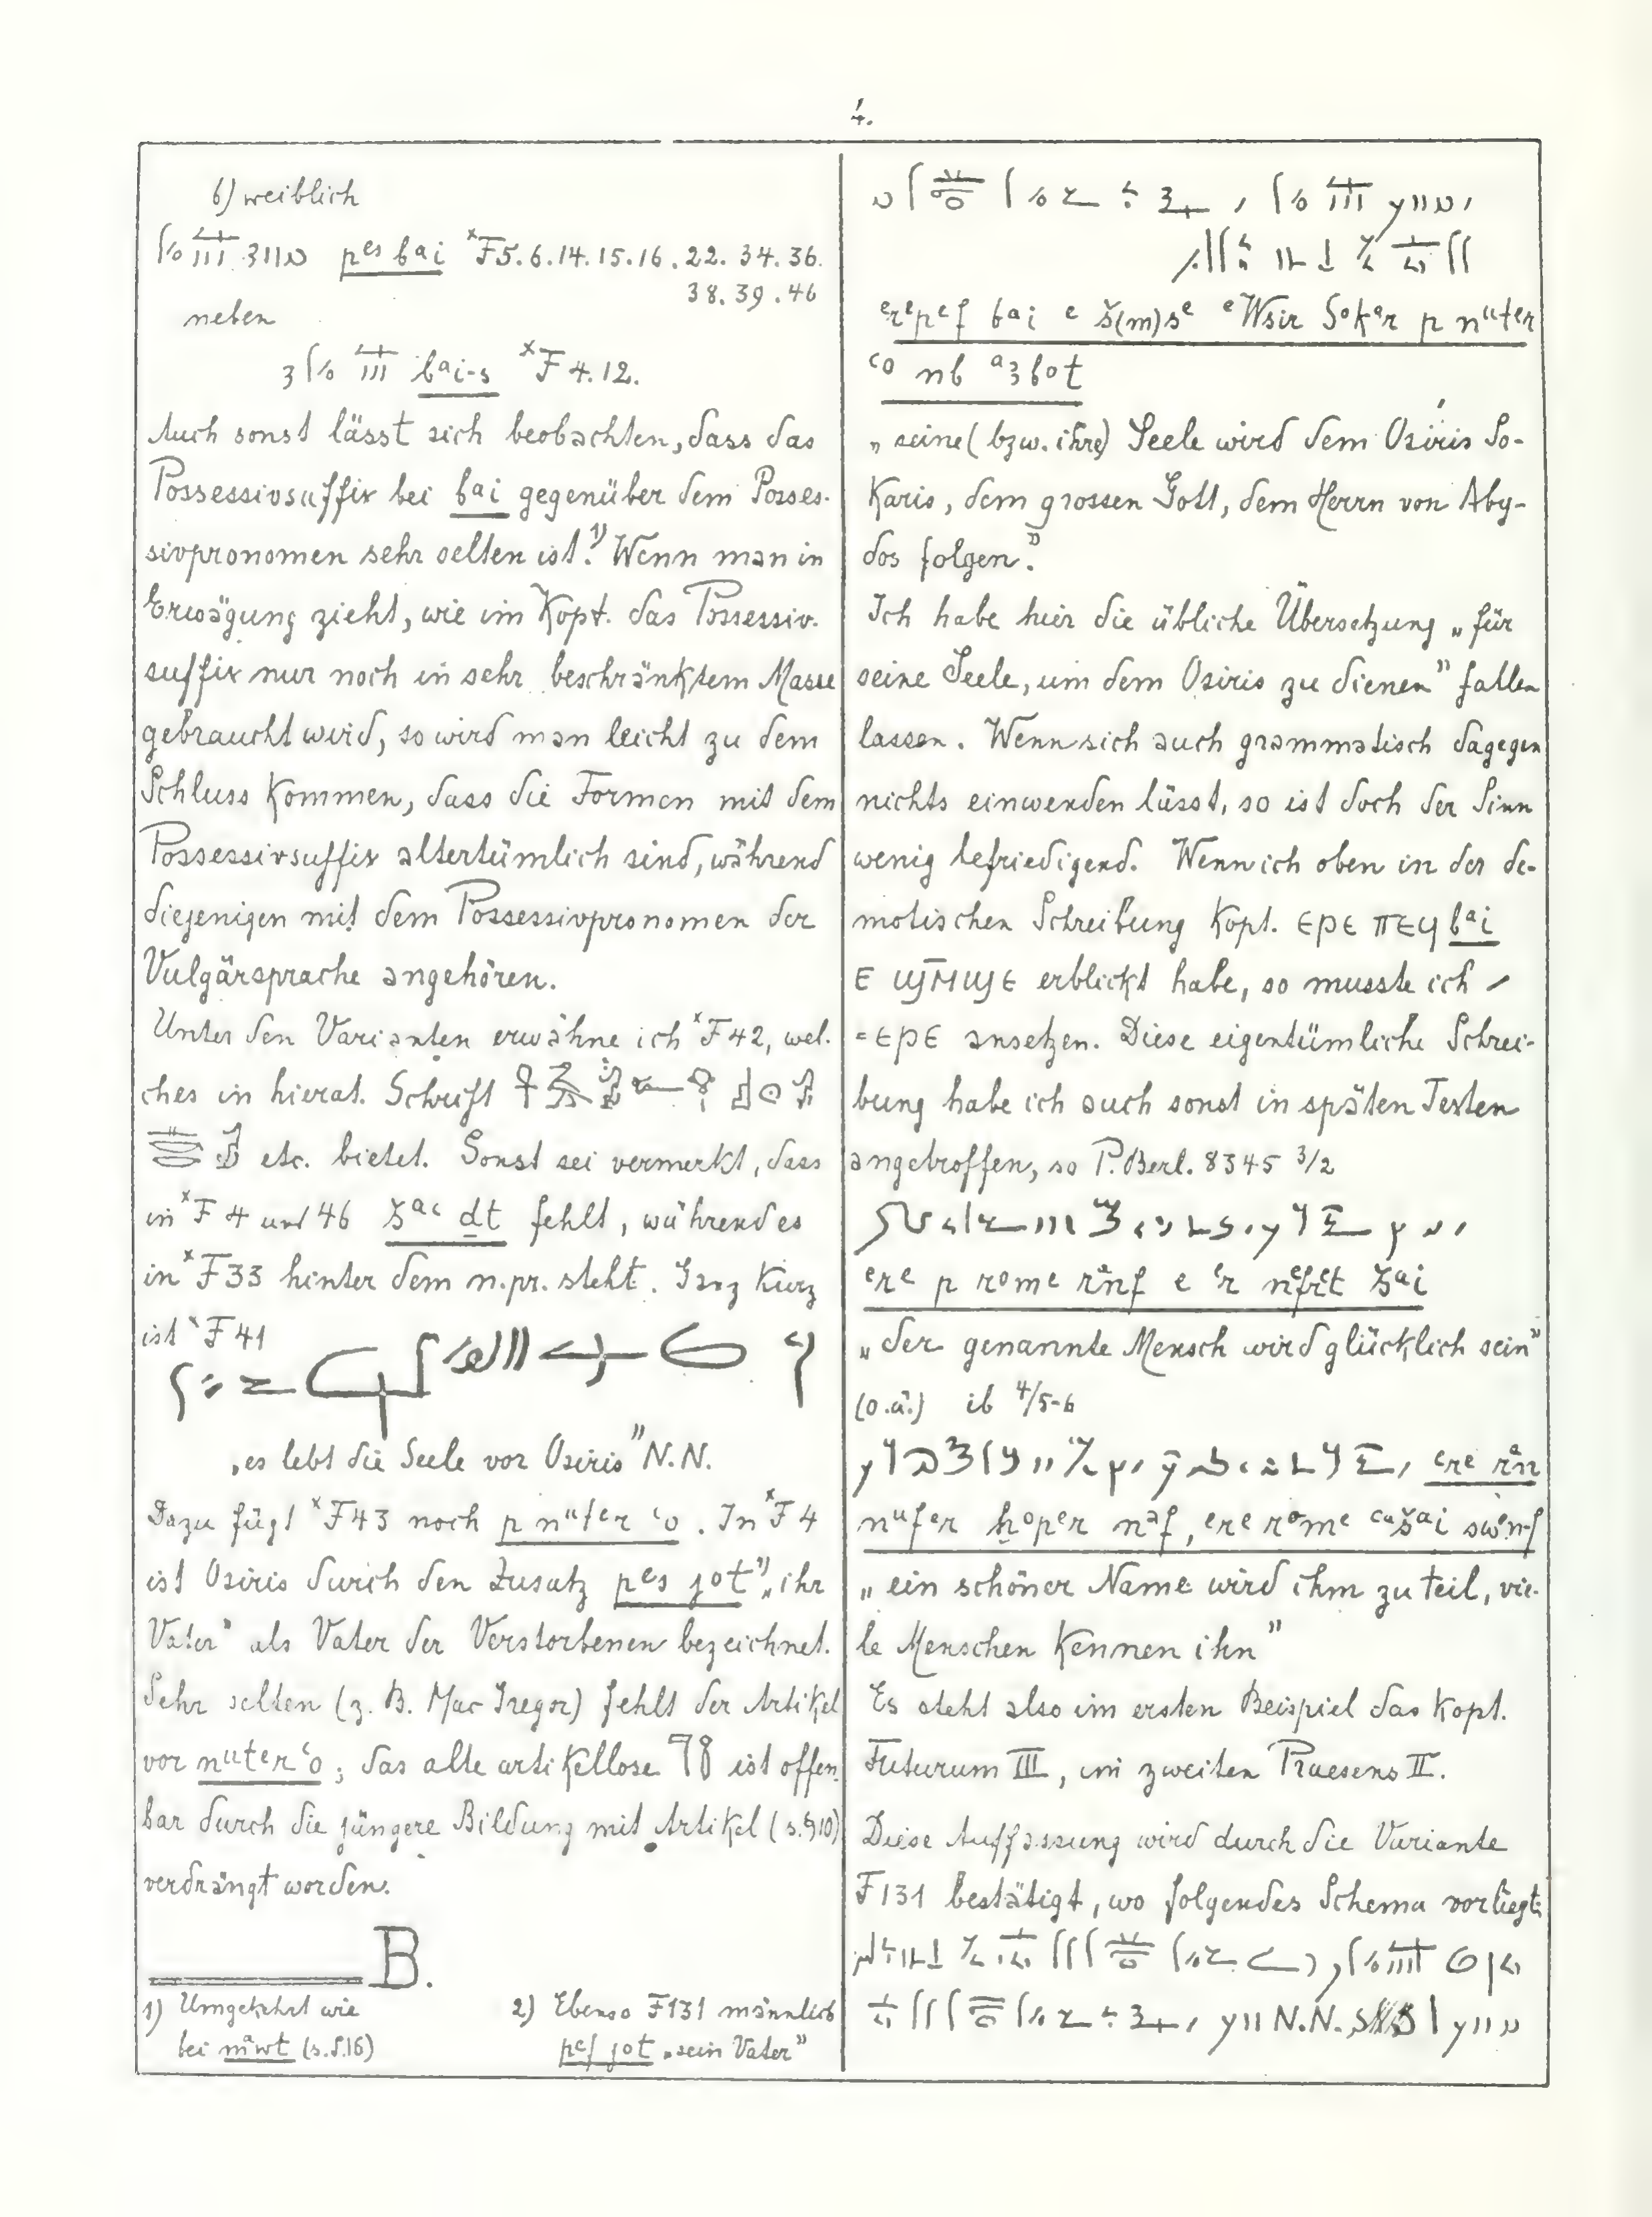 4.
b) weiblich
pes bai ˣF5.6.14.15.16.22.34.36.
38.39.46
neben
bai-s ˣF 4.12.
Auch sonst lässt sich beobachten, dass das
Possessivsuffix bei bai gegenüber dem Posses-
sivpronomen sehr selten ist.¹⁾ Wenn man in
Erwägung zieht, wie im Kopt. das Possessiv-
suffix nur noch in sehr beschränktem Masse
gebraucht wird, so wird man leicht zu dem
Schluss kommen, dass die Formen mit dem
Possessivsuffix altertümlich sind, während
diejenigen mit dem Possessivpronomen der
Vulgärsprache angehören.
Unter den Varianten erwähne ich ˣF42, wel-
ches in hierat. Schrift
etc. bietet. Sonst sei vermerkt, dass
in ˣF 4 und 46 šaʿ ḏt fehlt, während es
in ˣF33 hinter dem n.pr. steht. Ganz kurz
ist ˣF41
„es lebt die Seele vor Osiris" N.N.
Dazu fügt ˣF43 noch p nuter ʿo. In ˣF4
ist Osiris durch den Zusatz pes jot²⁾ „ihr
Vater" als Vater der Verstorbenen bezeichnet.
Sehr selten (z. B. Mac Gregor) fehlt der Artikel
vor nuter ʿo; das alte artikellose ist offen-
bar durch die jüngere Bildung mit Artikel (s.§10)
verdrängt worden.
B.
1) Umgekehrt wie
bei måwt (s.S.16)
2) Ebenso F131 männlich
pef jot „sein Vater"
erepef bai e š(m)se e Wsir Soker p nuter
ʿo nb aꜣbot
„seine (bzw. ihre) Seele wird dem Osiris So-
karis, dem grossen Gott, dem Herrn von Aby-
dos folgen."
Ich habe hier die übliche Übersetzung „für
seine Seele, um dem Osiris zu dienen" fallen
lassen. Wenn sich auch grammatisch dagegen
nichts einwenden lässt, so ist doch der Sinn
wenig befriedigend. Wenn ich oben in der de-
motischen Schreibung kopt. ⲉⲣⲉ ⲡⲉϥ bai
ⲉ ϣⲙ̄ϣⲉ erblickt habe, so musste ich
= ⲉⲣⲉ ansetzen. Diese eigentümliche Schrei-
bung habe ich auch sonst in späten Texten
angetroffen, so P. Berl. 8345 3/2
ere p rome rånf e ʿr nefret šai
„der genannte Mensch wird glücklich sein"
(o.ä.) ib 4/5-6
ere rån
nufer ḫoper naf, ere rome ʿašai swen-f
„ein schöner Name wird ihm zu teil, vie-
le Menschen kennen ihn"
Es steht also im ersten Beispiel das kopt.
Futurum III, im zweiten Praesens II.
Diese Auffassung wird durch die Variante
F131 bestätigt, wo folgendes Schema vorliegt:
N.N.